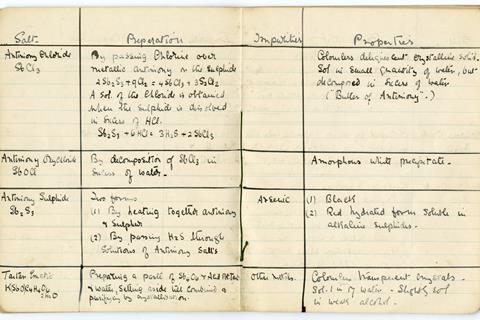 Salts Preparation Impurities Properties
Antimony Chloride
SbCl3
By passing Chlorine over
metallic antimony or the Sulphide
2Sb2S3 + 9Cl2 = 4SbCl3 + 3S2Cl2
A Sol of the Chloride is obtained
when the Sulphide is dissolved
in Excess of HCl.
Sb2S3 + 6HCl = 3H2S + 2SbCl3
Colourless deliquescent crystalline solid.
Sol in Small Quantity of water, but
decomposed in Excess of water
("Butter of Antimony".)
Antimony Oxychloride
SbOCl
By decomposition of SbCl3 in
Excess of water.
Amorphous white precipitate.
Antimony Sulphide
Sb2S3
Two forms
(1) By heating together antimony
& Sulphur
(2) By passing H2S through
Solutions of Antimony Salts
Arsenic
(1) Black
(2) Red hydrated form soluble in
alkaline Sulphides.
Tartar Emetic
Preparing a paste of Sb2O3 &
& water, setting aside till combined &
purifying by crystallisation.
Other metals.
Colourless transparent crystals.
Sol. 1 in 17 water - Slightly sol
in weak alcohol.